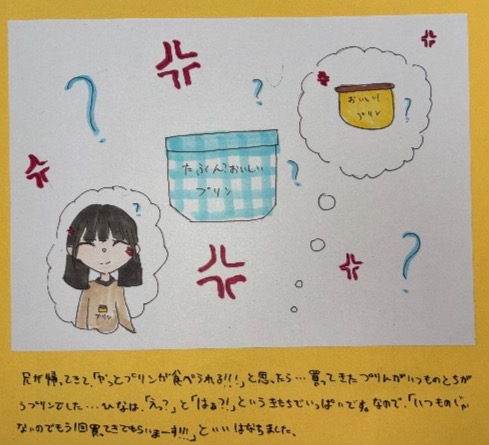 おいしい
プリン
たぶん?おいしい
プリン
プリン
兄が帰ってきて、「やっとプリンが食べられる!!!」と思ったら…買ってきたプリんがいつものとちが
うプリンでした…ひなは、「えっ?」と「はぁ?!」というきもちでいっぱいです。なので、「いつものじゃ
ないのでもう1回買ってきてもらいまーす!!!」といいはなちました。